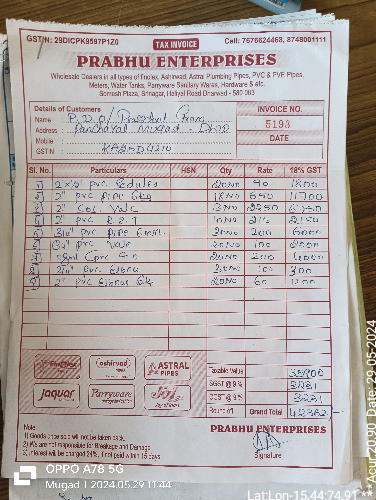 GSTIN: 29DICPK9597P1Z0
TAX INVOICE
Cell: 7676624468, 8748001111
PRABHU ENTERPRISES
Wholesale Dealers in all types of finolex, Ashirwad, Astral Plumbing Pipes, PVC & PVE Pipes,
Meters, Water Tanks, Parryware Sanitary Wares, Hardware & etc.
Somesh Plaza, Srinagar, Haliyal Road Dharwad - 580 003
Details of Customers
Name P.D.O/ President Gram
Address Panchayat Mugad
Mobile
GSTIN
INVOICE NO.
5193
DATE
Sl. No. Particulars HSN Qty Rate 18% GST
1) PVC 20NO 90 1800
2) 2" PVC Pipe 6kg 18NO 650 11700
3) 3NO 2250 6750
4) 2" PVC 10NO
5) PVC Pipe 200 6000
6) PVC 20NO 100 2000
7) CPVC 20NO 200 4000
8) PVC Elbow 100 300
9) 2" PVC Elbow 20NO 60 1200
Finolex
ashirvad
ASTRAL PIPES
JAQUAR
Parryware
Taxable Value 35900
SGST @ 9% 3231
CGST @ 9% 3231
Round off Grand Total 42362/-
PRABHU ENTERPRISES
Note:
1) Goods once sold will not be taken back
2) We are not responsible for Breakage and Damage
3) Interest will be charged 24%, if not paid within 15 days
Signature
OPPO A78 5G
Mugad | 2024.05.29 11:44
Lat:Lon-15.44:74.91**
Acc: 20.90 Date: 29-05-2024